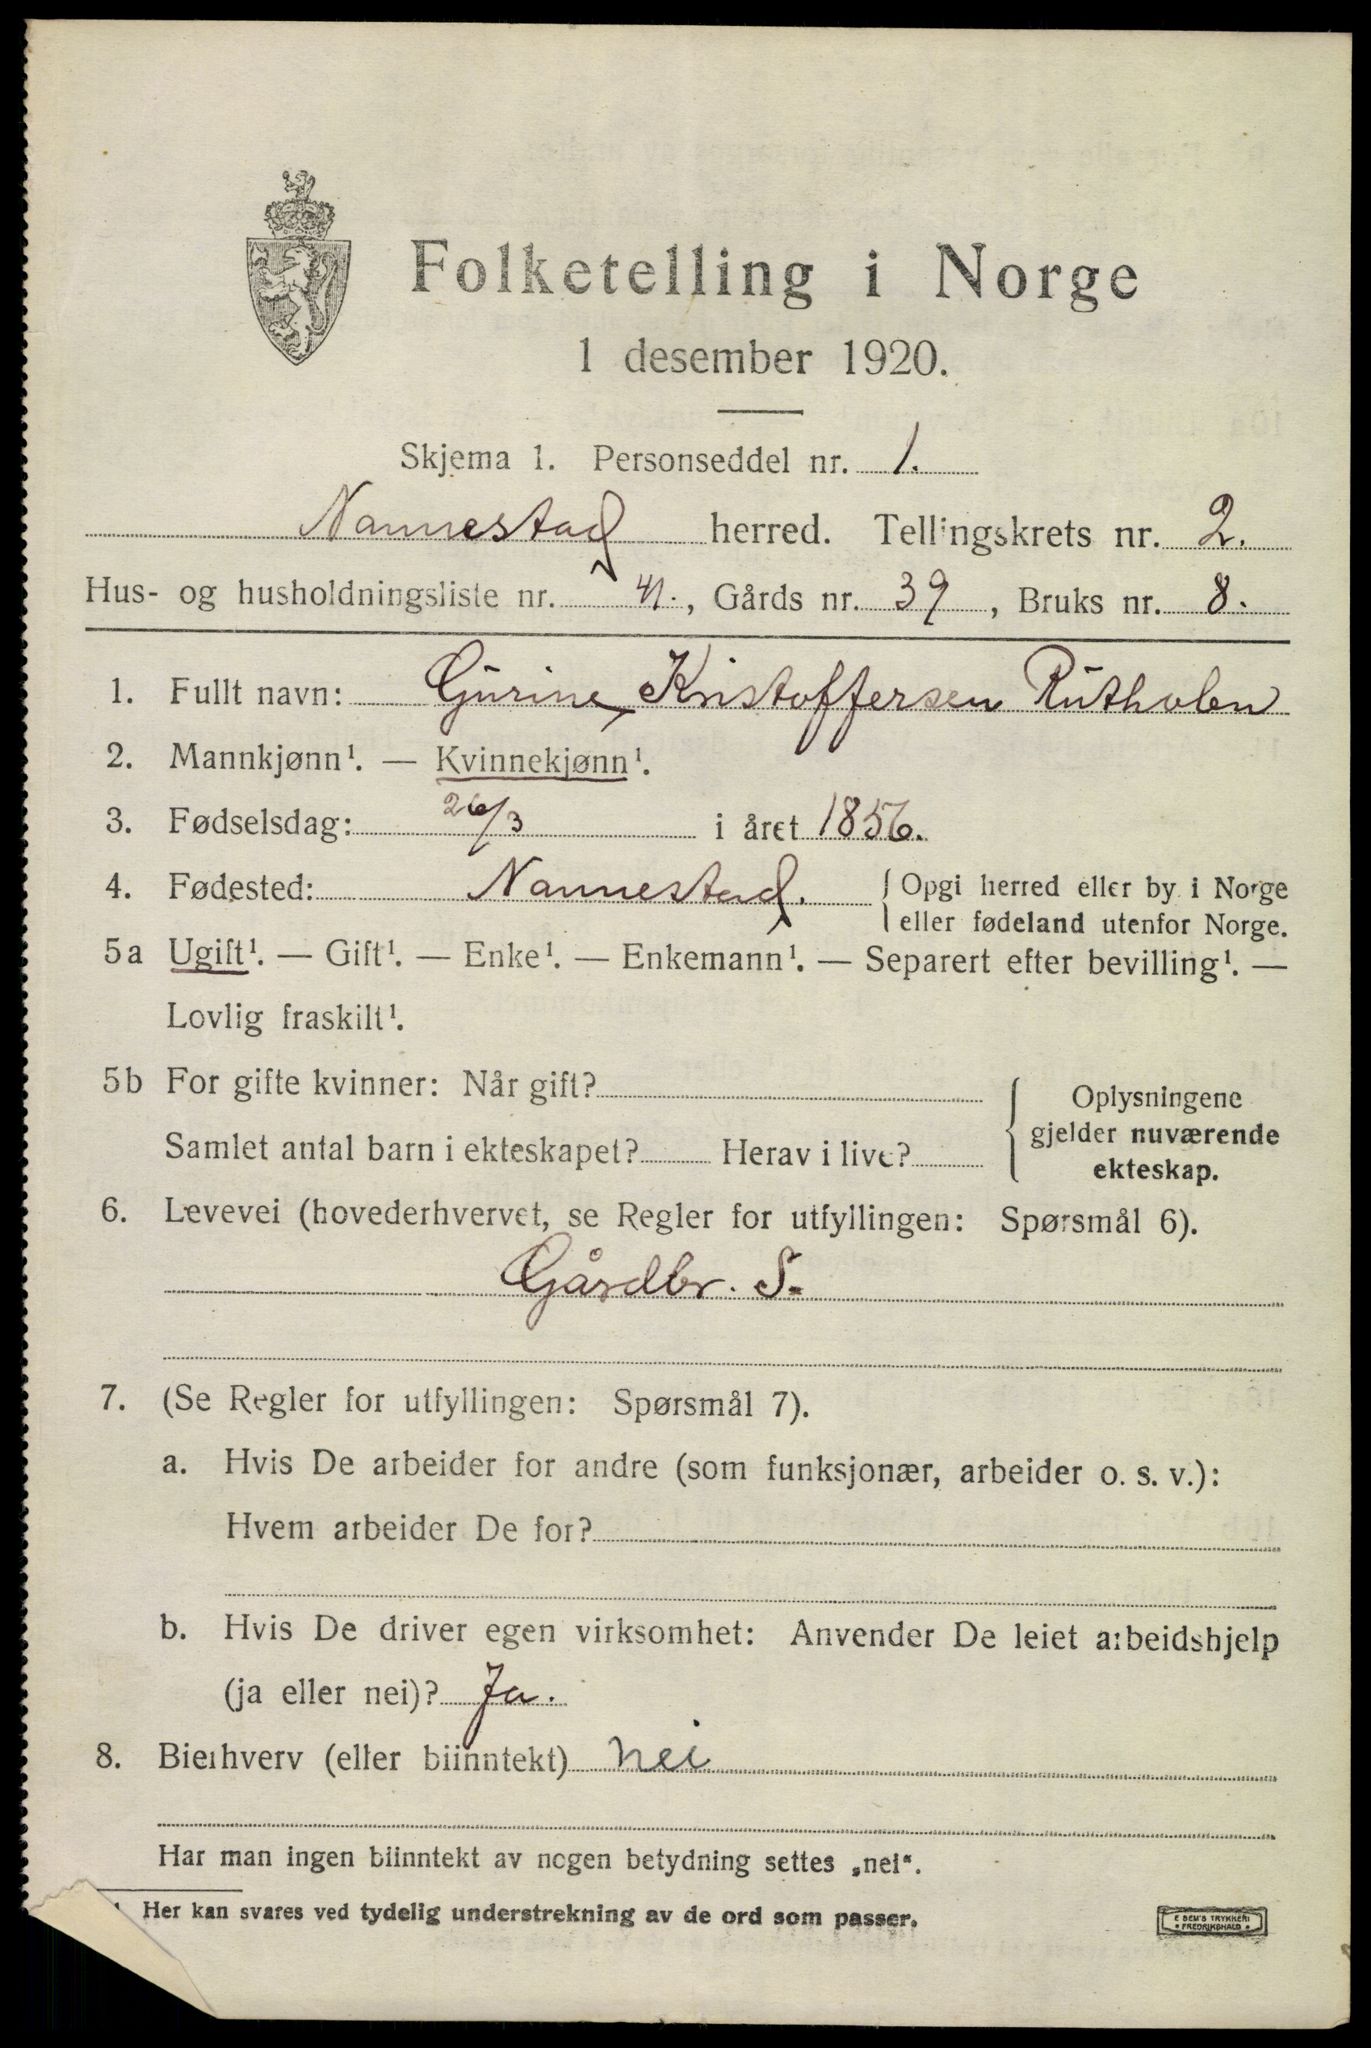 Folketelling i Norge
1 desember 1920.
Skjema 1. Personseddel nr. 1.
Nannestad herred. Tellingskrets nr. 2.
Hus- og husholdningsliste nr. 41., Gårds nr. 39, Bruks nr. 8.
1. Fullt navn: Gurine Kristoffersen Rutholen
2. Mannkjønn¹. — Kvinnekjønn¹.
3. Fødselsdag: 26/3 i året 1856.
4. Fødested: Nannestad. { Opgi herred eller by i Norge
eller fødeland utenfor Norge.
5a Ugift¹. — Gift¹. — Enke¹. — Enkemann¹. — Separert efter bevilling¹. —
Lovlig fraskilt¹.
5b For gifte kvinner: Når gift?
Samlet antal barn i ekteskapet? Herav i live?
Oplysningene
gjelder nuværende
ekteskap.
6. Levevei (hovederhvervet, se Regler for utfyllingen: Spørsmål 6).
Gårdbr. S.
7. (Se Regler for utfyllingen: Spørsmål 7).
a. Hvis De arbeider for andre (som funksjonær, arbeider o. s. v.):
Hvem arbeider De for?
b. Hvis De driver egen virksomhet: Anvender De leiet arbeidshjelp
(ja eller nei)? Ja.
8. Bierhverv (eller biinntekt) nei
Har man ingen biinntekt av nogen betydning settes „nei“.
1 Her kan svares ved tydelig understrekning av de ord som passer.
E SEM'S TRYKKERI
FREDRIKSHALD